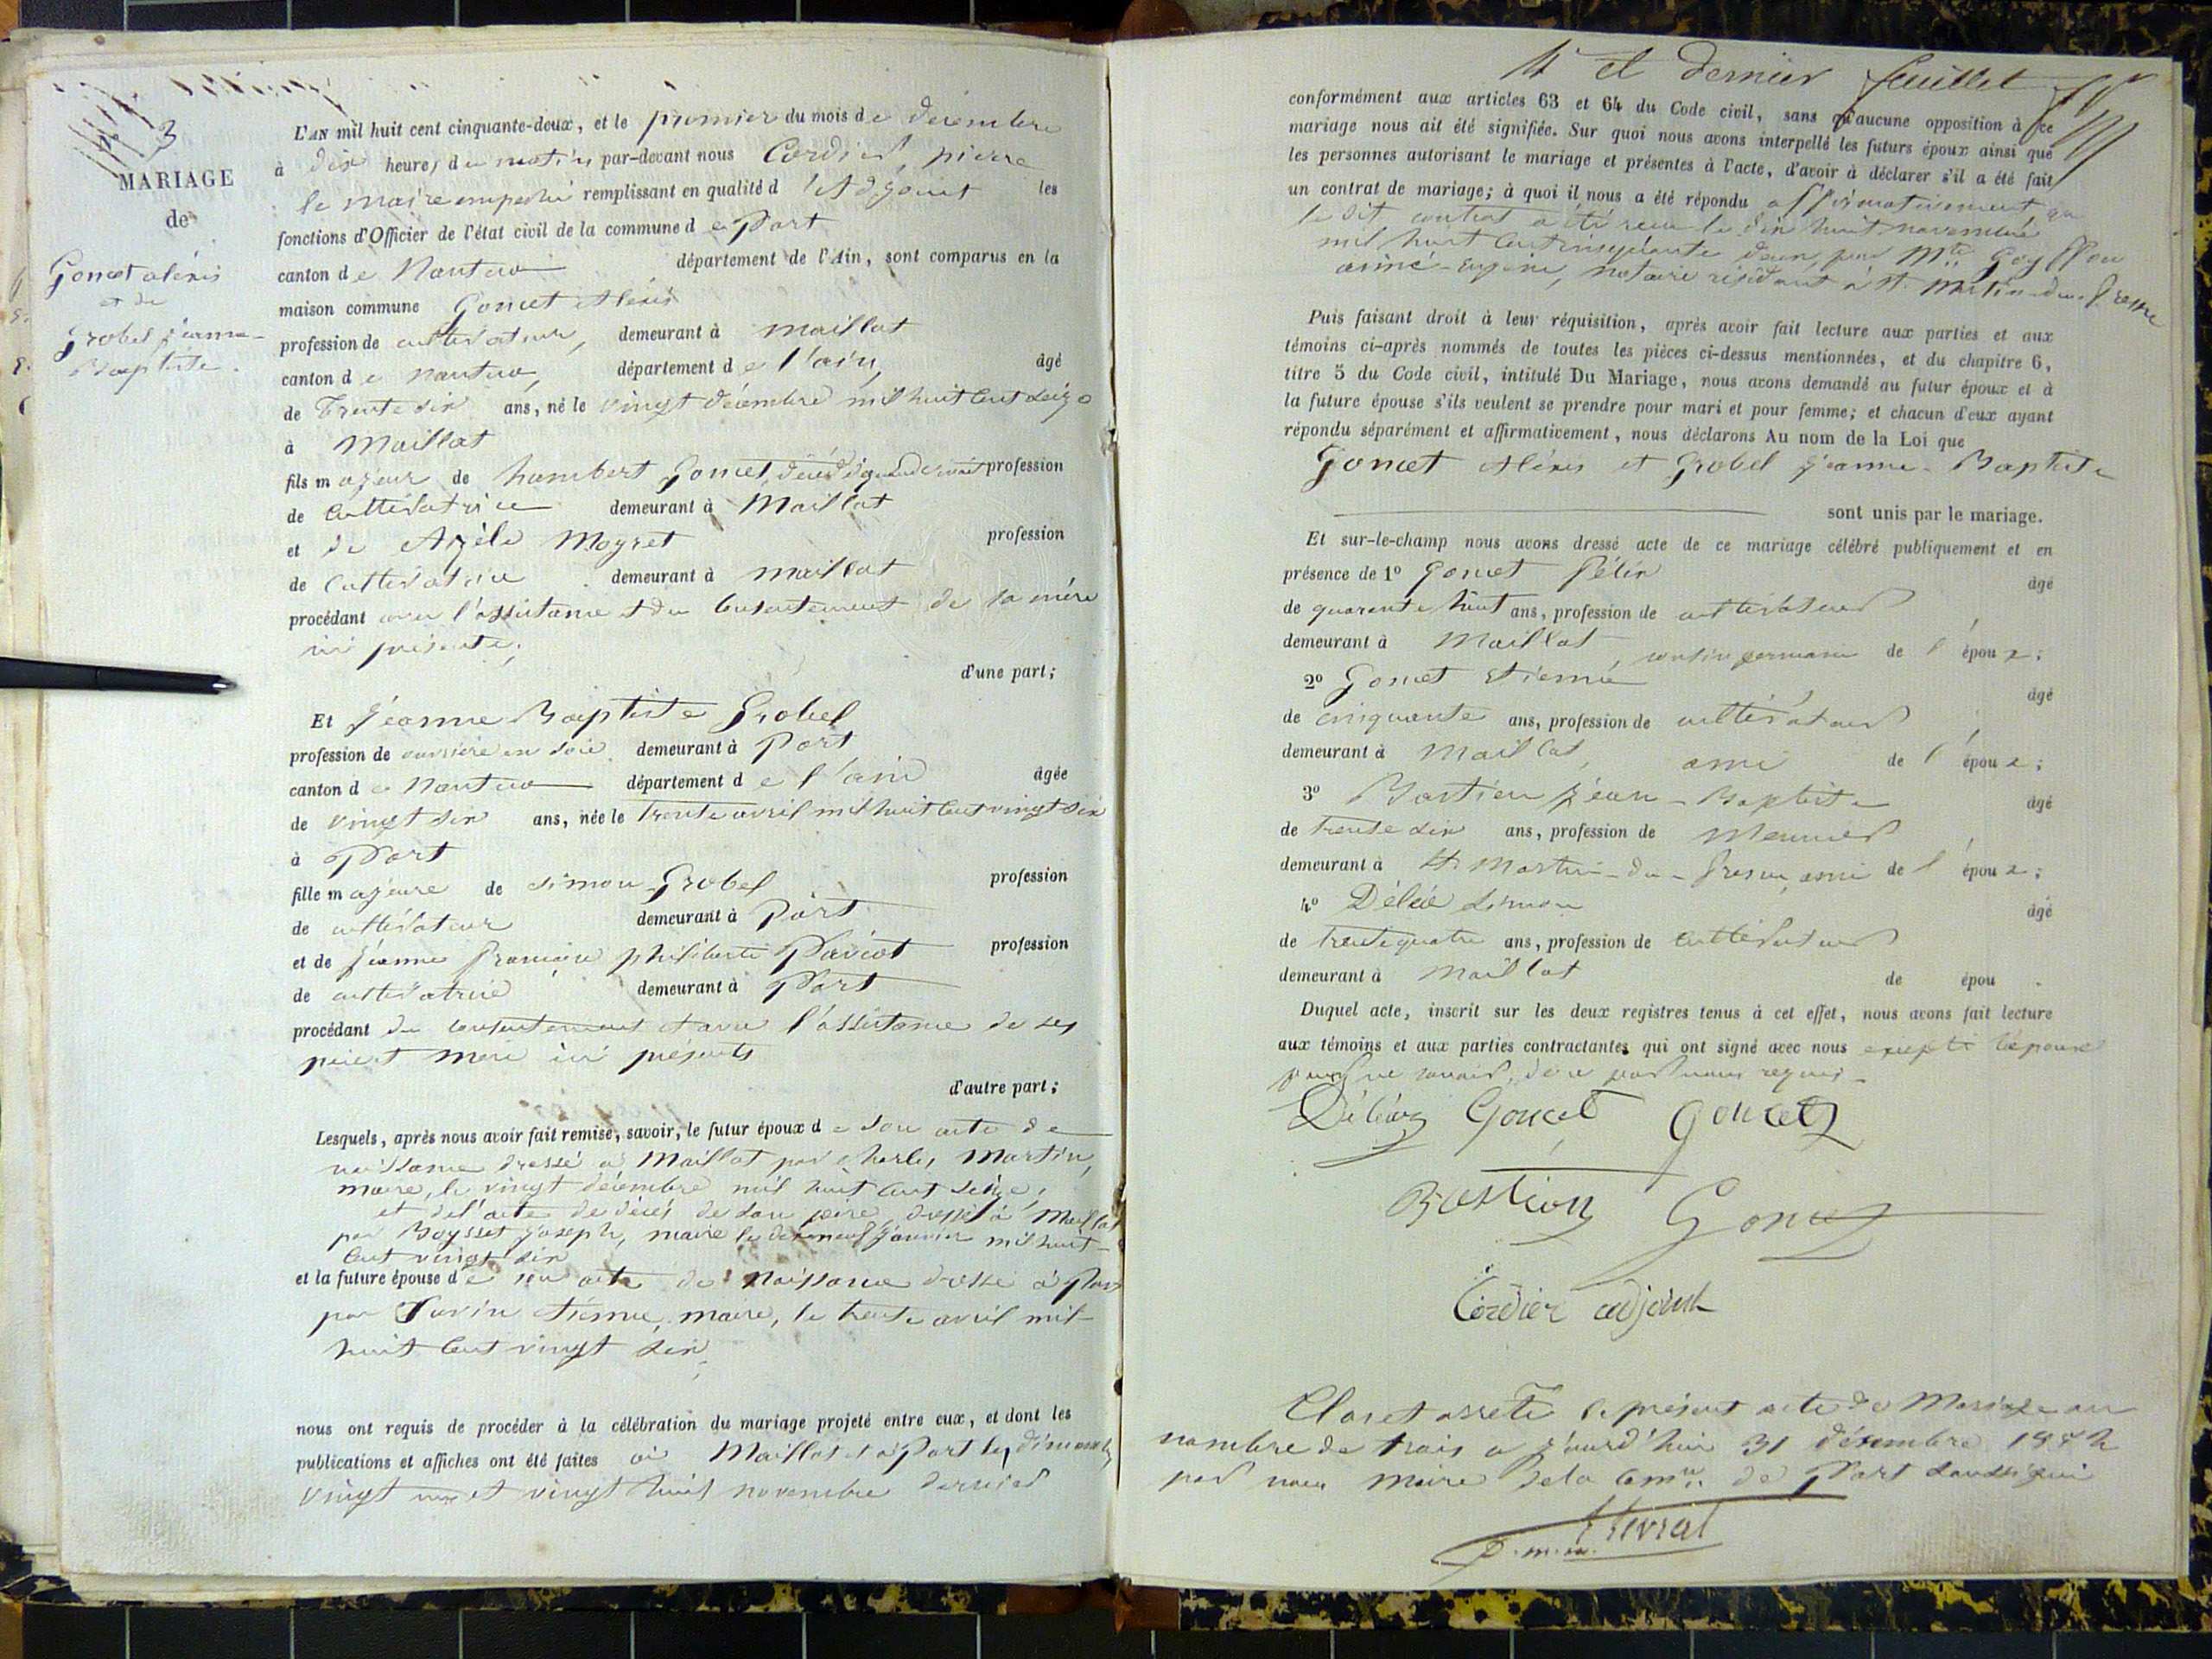 3
MARIAGE
de
Goncet aléxis
et de
Grobel jéanne-
Baptiste.
L'AN mil huit cent cinquante-deux, et le premier du mois de décembre
à dix heures du matin par-devant nous Cordier, pierre
le maire empêché remplissant en qualité d'adjoint les
fonctions d'Officier de l'état civil de la commune de Port
canton de Nantua département de l'Ain, sont comparus en la
maison commune Goncet Aléxis
profession de cultivateur, demeurant à Maillat
canton de nantua, département de l'ain, âgé
de Trente six ans, né le vingt décembre mil huit cent seize
à Maillat
fils majeur de humbert Goncet, décédé profession
de Cultivatrice demeurant à Maillat
et de Azèle Moyret profession
de Cultivatrice demeurant à Maillat
procédant avec l'assistance et du Consentement de sa mère
ici présente,
d'une part;
Et Jéanne Baptiste Grobel
profession de ouvrière en soie demeurant à Port
canton de Nantua département de l'ain âgée
de vingt six ans, née le Trente avril mil huit cent vingt six
à Port
fille majeure de simon Grobel profession
de cultivateur demeurant à Port
et de jéanne françoise philiberte Paviot profession
de cultivatrice demeurant à Port
procédant du consentement et avec l'assistance de ses
père et mère ici présents
d'autre part;
Lesquels, après nous avoir fait remise, savoir, le futur époux de son acte de
naissance dressé à Maillat par charles Martin,
maire, le vingt décembre mil huit cent seize,
et de l'acte de décès de son père, dressé à Maillat
par Boysset Joseph, maire le dixneuf janvier mil huit-
cent vingt six
et la future épouse de son acte de naissance dressé à Port
par Savin étienne, maire, le trente avril mil-
huit cent vingt six,
nous ont requis de procéder à la célébration du mariage projeté entre eux, et dont les
publications et affiches ont été faites à Maillat et à Port les dimanches
vingt un et vingt huit novembre dernier
4e et dernier feuillet
conformément aux articles 63 et 64 du Code civil, sans qu'aucune opposition à ce
mariage nous ait été signifiée. Sur quoi nous avons interpellé les futurs époux ainsi que
les personnes autorisant le mariage et présentes à l'acte, d'avoir à déclarer s'il a été fait
un contrat de mariage; à quoi il nous a été répondu affirmativement
le dit contrat a été reçu le dix huit novembre
mil huit cent cinquante deux, par Mte Goyffon
aimé-Eugène, notaire résidant à St. Martin-du-fresne
Puis faisant droit à leur réquisition, après avoir fait lecture aux parties et aux
témoins ci-après nommés de toutes les pièces ci-dessus mentionnées, et du chapitre 6,
titre 5 du Code civil, intitulé Du Mariage, nous avons demandé au futur époux et à
la future épouse s'ils veulent se prendre pour mari et pour femme; et chacun d'eux ayant
répondu séparément et affirmativement, nous déclarons Au nom de la Loi que
Goncet Aléxis et Grobel jéanne-Baptiste
sont unis par le mariage.
Et sur-le-champ nous avons dressé acte de ce mariage célébré publiquement et en
présence de 1º Goncet Félix âgé
de quarante huit ans, profession de cultivateur
demeurant à Maillat, cousin germain de l'époux;
2º Goncet étienne âgé
de cinquante ans, profession de cultivateur
demeurant à Maillat, ami de l'époux;
3º Bastien jéan-Baptiste âgé
de trente six ans, profession de Meunier
demeurant à St Martin-du-fresne, ami de l'époux;
4º Déléaz simon âgé
de trente quatre ans, profession de Cultivateur
demeurant à Maillat de épou .
Duquel acte, inscrit sur les deux registres tenus à cet effet, nous avons fait lecture
aux témoins et aux parties contractantes qui ont signé avec nous excepté l'épouse
pour ne savoir, de ce par nous requis-
Déléaz Goncet Goncet
Bastion Goncet
Cordier adjoint
Clos et arrêté le présent acte de Mariage au
nombre de trois a jourd'hui 31 décembre 1852
par nous maire de la Comne. de Port soussigné